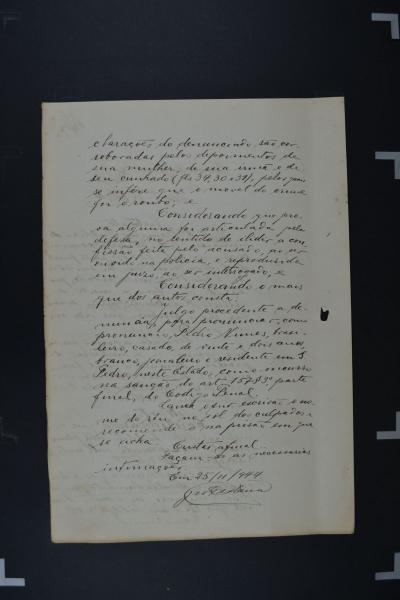 clarações do denunciado são cor
roboradas pelos depoimentos de
sua mulher, de sua irmã e de
seu cunhado (fls 34, 30 e 32), pelos quais
se infere que o movel do crime
foi o roubo; e
Considerando que pro
va alguma foi articulada pela
defesa, no sentido de elidir a con
fissão feita pelo acusado, ao ser
na policia, e reproduzida
em juizo, ao ser interrogado, e
Considerando o mais
que dos autos consta:
Julgo procedente a de
nuncia, para pronunciar, como
pronuncio, Pedro Nunes, brasi
leiro, casado, de vinte e dois anos,
branco, jornaleiro e residente em S.
Pedro, neste Estado, como incurso
na sanção do art. 157 §3º, parte
final, do Codigo Penal.
Lance o snr. escrivão o no
me do réu no rol dos culpados e
recomende-o na prisão em que
se acha.
Custas, afinal.
Façam-se as necessarias
intimações
Em 25/11/944